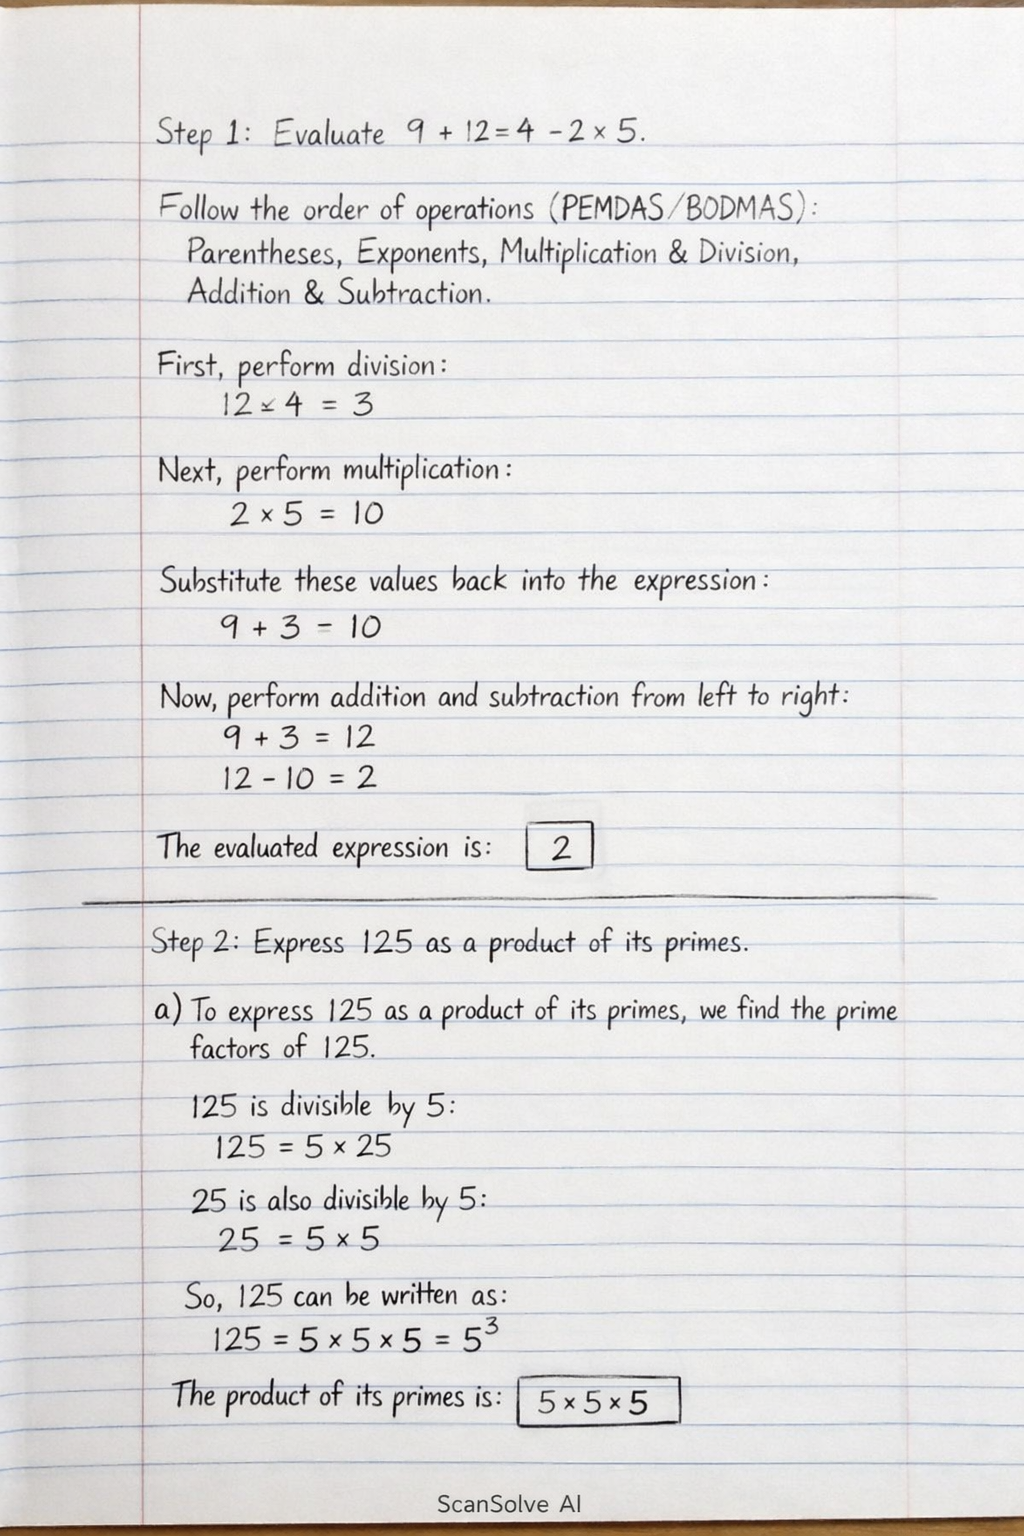 Step 1: Evaluate 9 + 12 = 4 - 2 × 5.
Follow the order of operations (PEMDAS/BODMAS):
Parentheses, Exponents, Multiplication & Division,
Addition & Subtraction.
First, perform division:
12 4 = 3
Next, perform multiplication:
2 × 5 = 10
Substitute these values back into the expression:
9 + 3 - 10
Now, perform addition and subtraction from left to right:
9 + 3 = 12
12 - 10 = 2
The evaluated expression is: 2
Step 2: Express 125 as a product of its primes.
a) To express 125 as a product of its primes, we find the prime
factors of 125.
125 is divisible by 5:
125 = 5 × 25
25 is also divisible by 5:
25 = 5 × 5
So, 125 can be written as:
125 = 5 × 5 × 5 = 5³
The product of its primes is: 5 × 5 × 5
ScanSolve AI